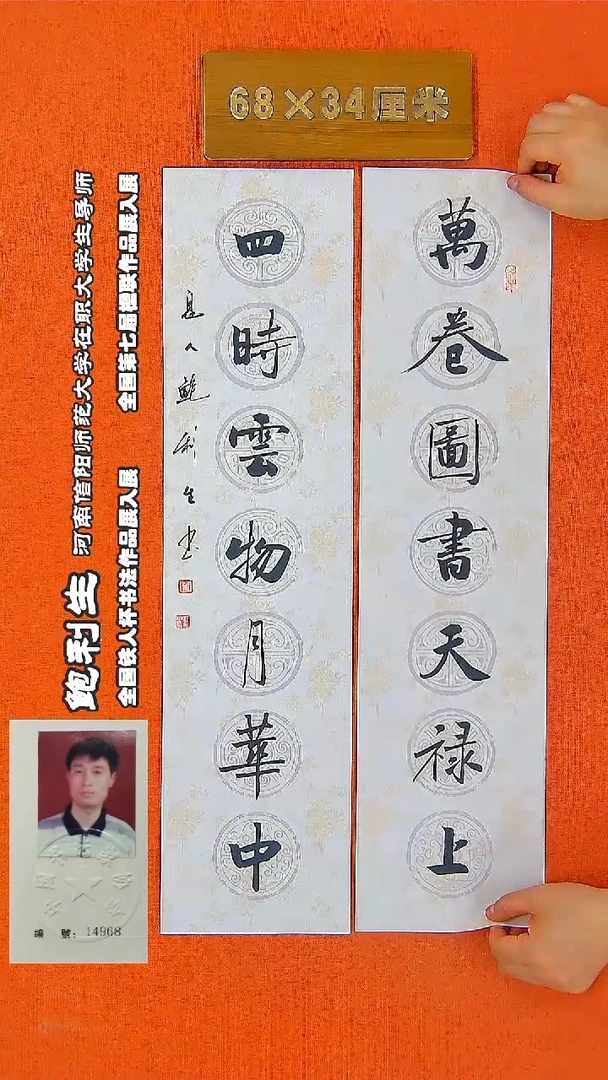 68×34厘米
萬卷圖書天禄上
四時雲物月華中
息人鮑利生书
鲍利生 河南信阳师范大学在职大学生导师
全国铁人杯书法作品展入展 全国第七届楹联作品展入展
編 號：14968